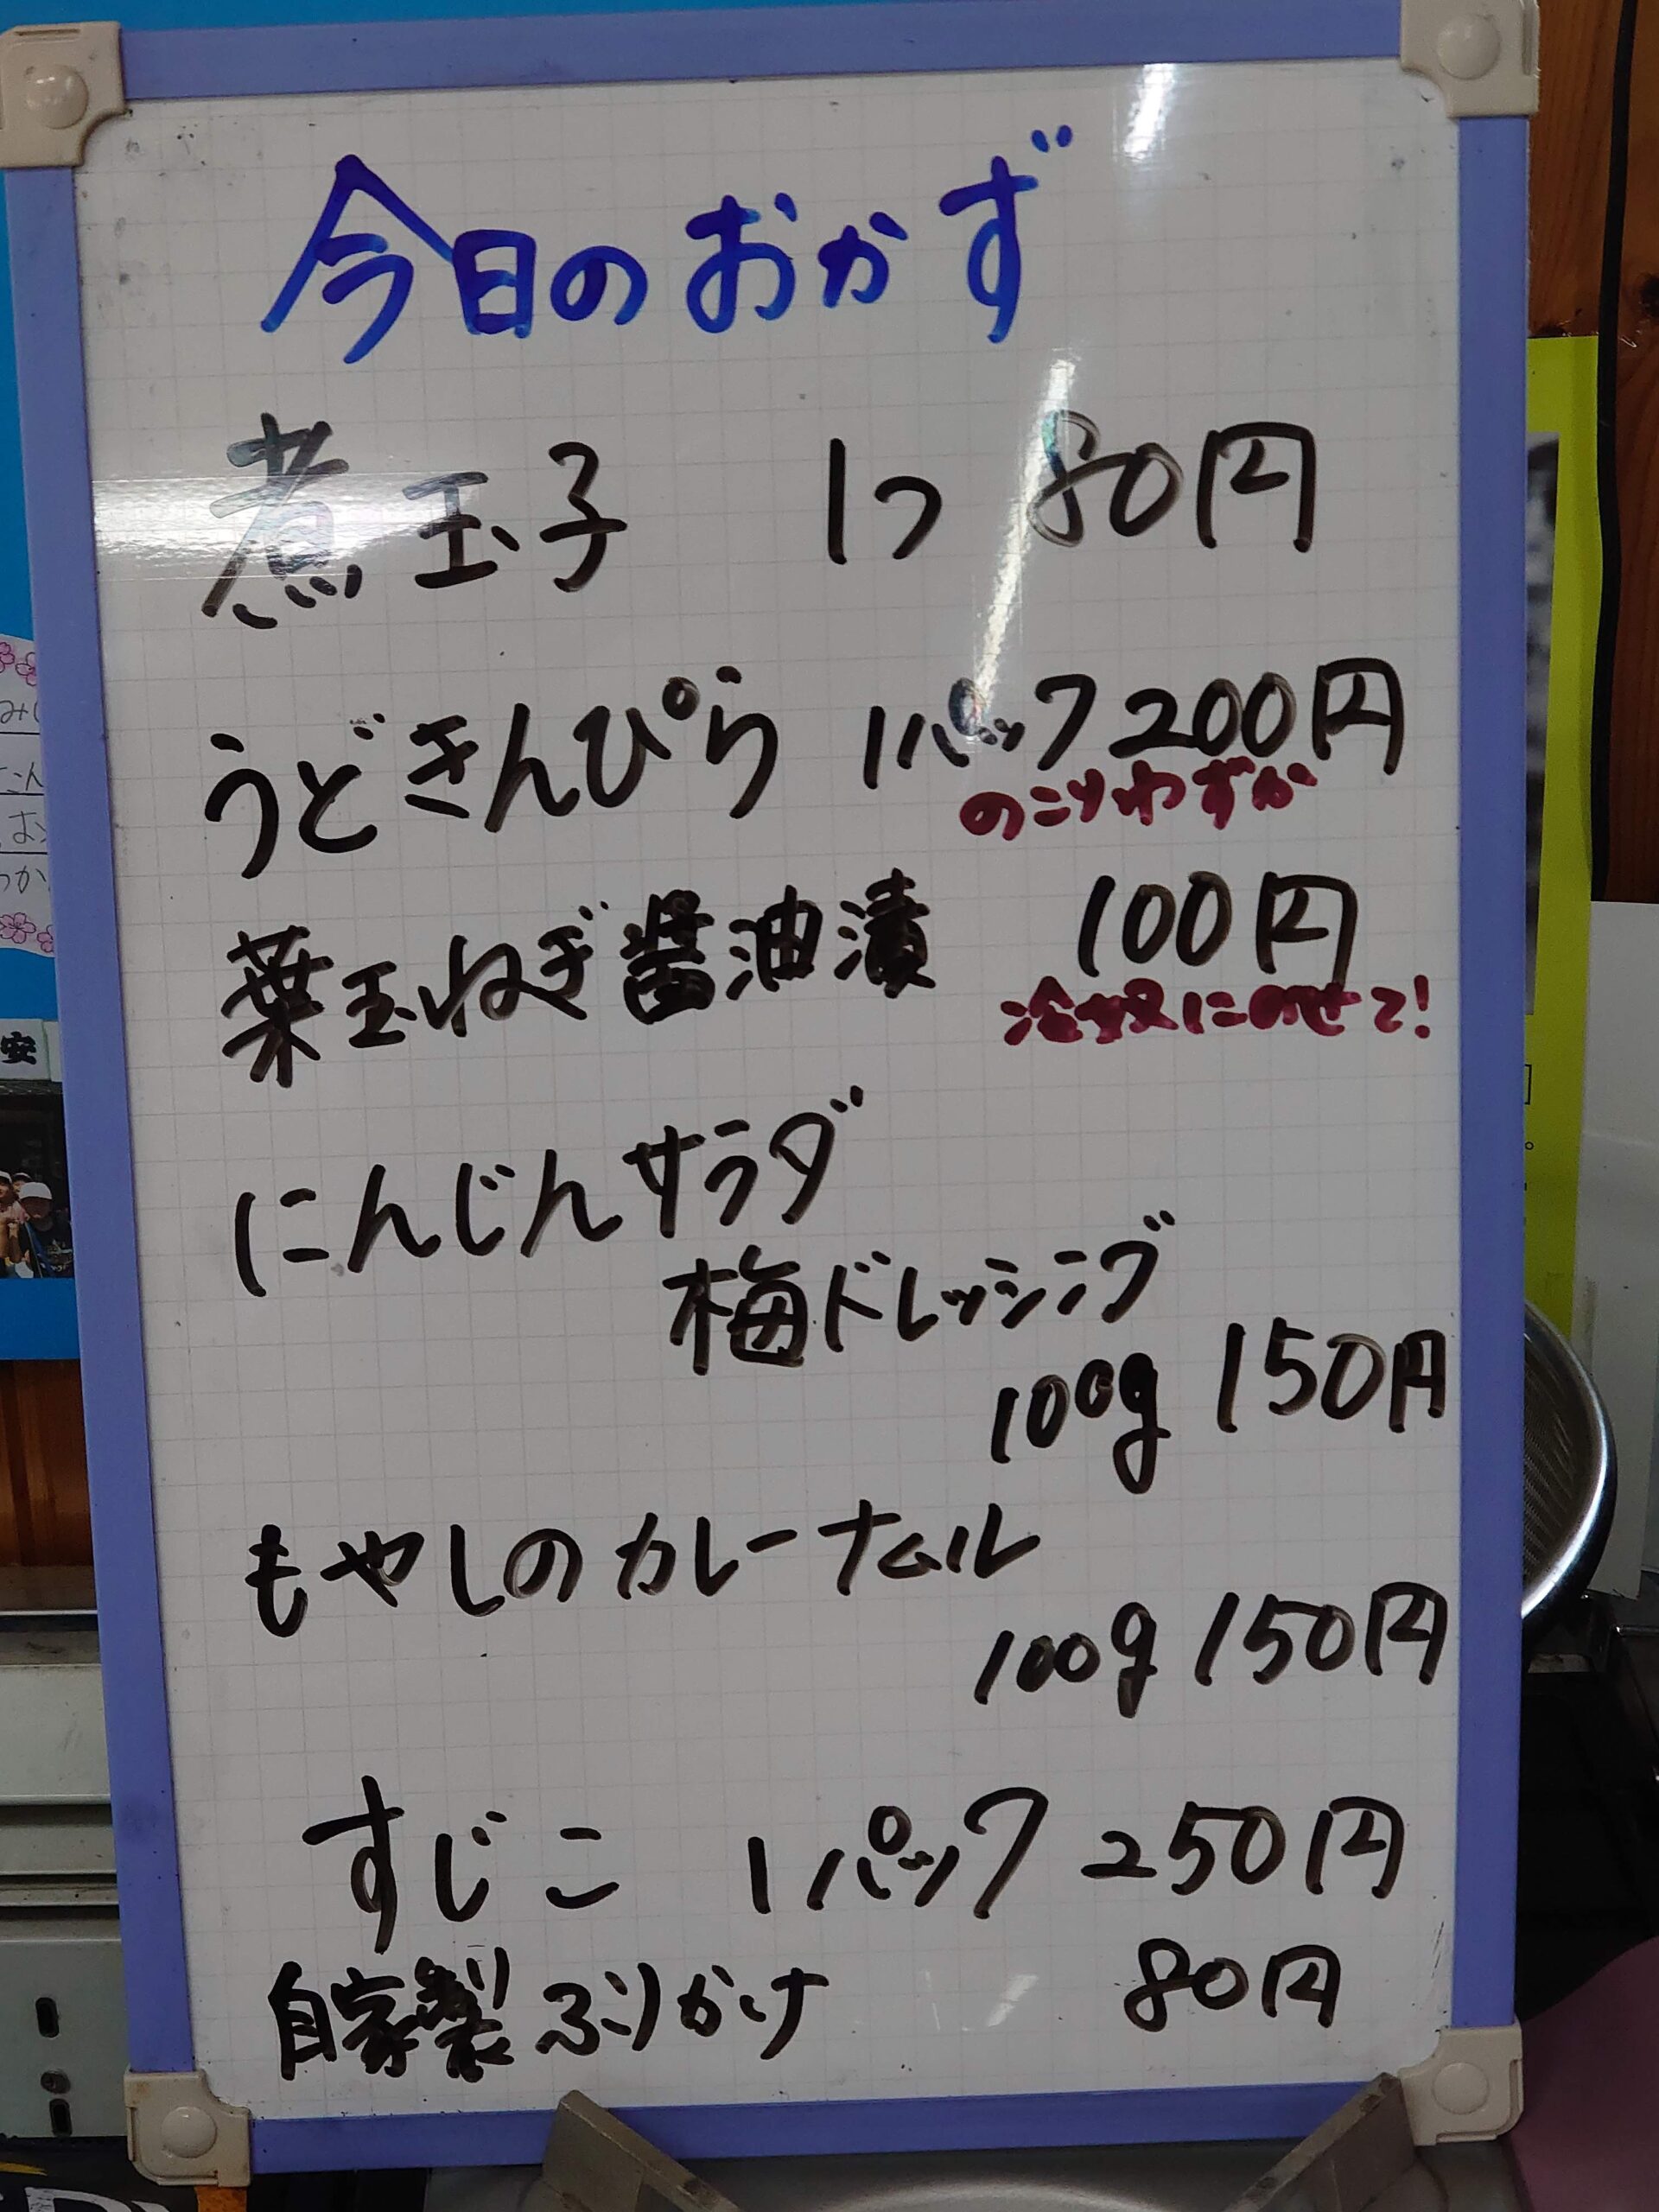 今日のおかず
煮玉子 1つ 80円
うどきんぴら 1パック 200円
のこりわずか
葉玉ねぎ醤油漬 100円
冷奴にのせて!
にんじんサラダ
梅ドレッシング
100g 150円
もやしのカレーナムル
100g 150円
すじこ 1パック 250円
自家製ふりかけ 80円
安